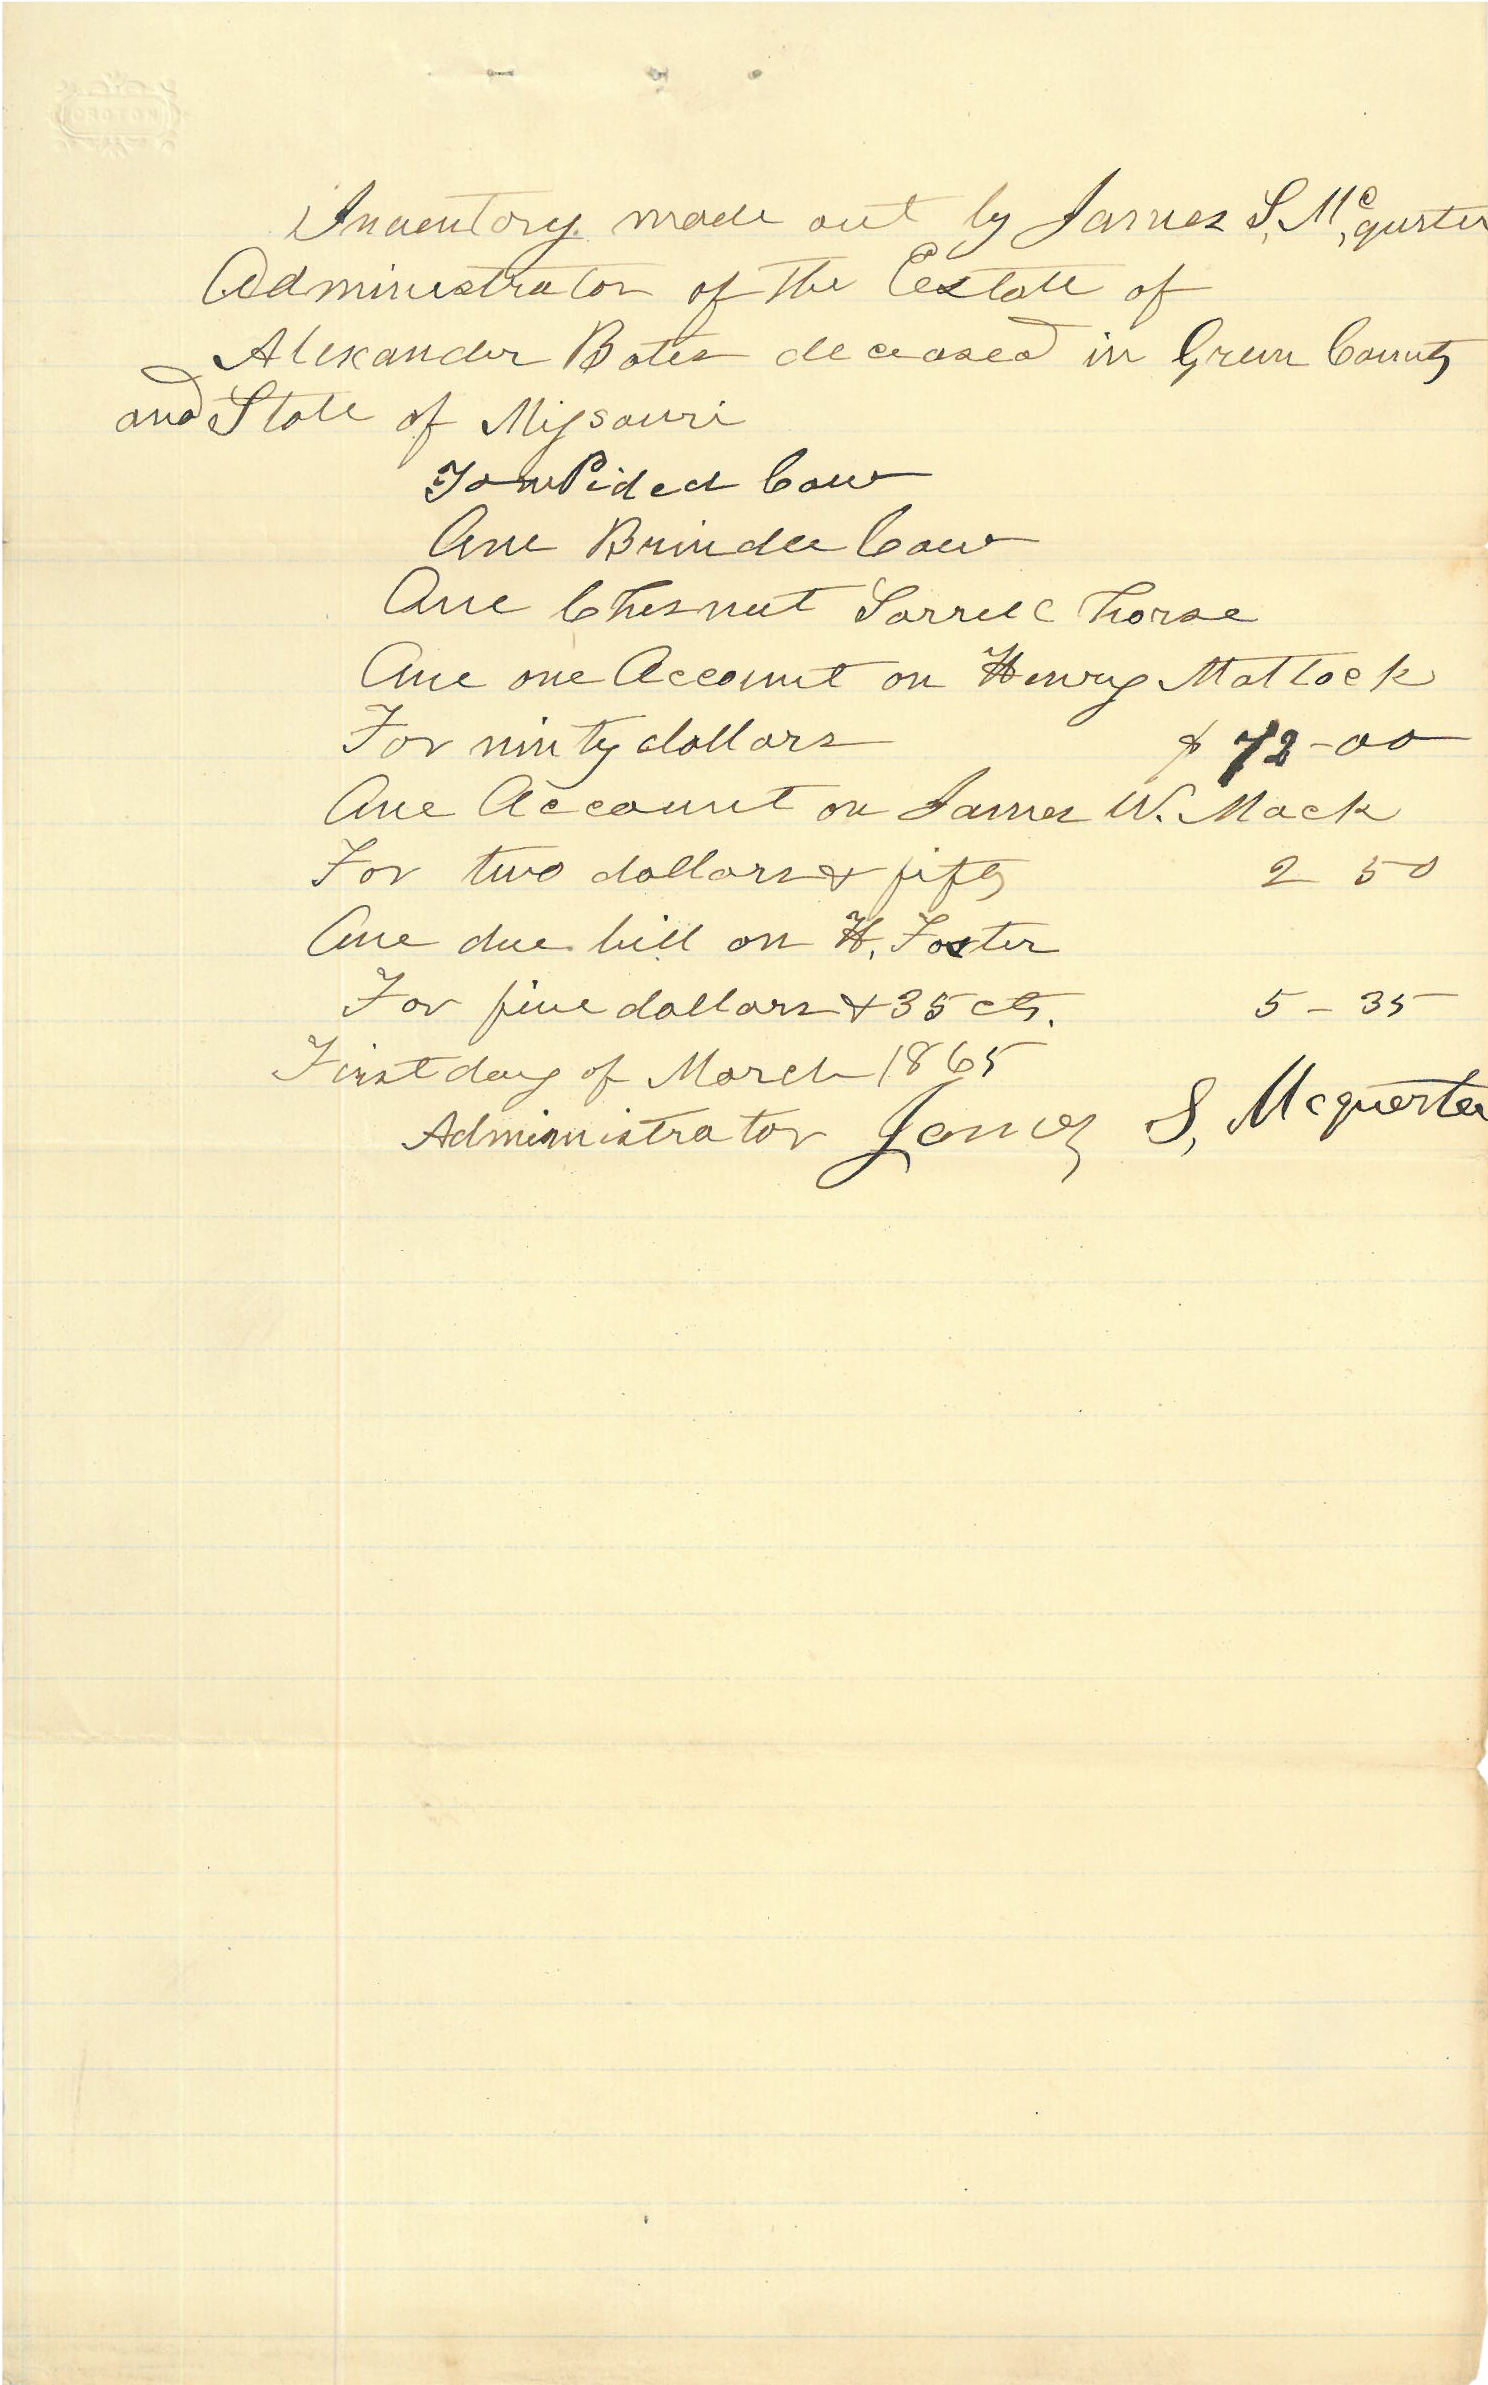 Inventory made out by James S. McQurter
Administrator of the Eestate of
Alexander Bates deceased in Green County
and State of Missouri
Pided Cow
One Brindle Cow
One Chesnut Sorrell horse
One one Account on Henry Matlock
For ninty dollars $ 72-00
One Account on James W. Mack
For two dollars & fifty 2 50
One due bill on H. Foster
For five dollars & 35 cts. 5-35
First day of March 1865
Administrator James S, Mcquerter